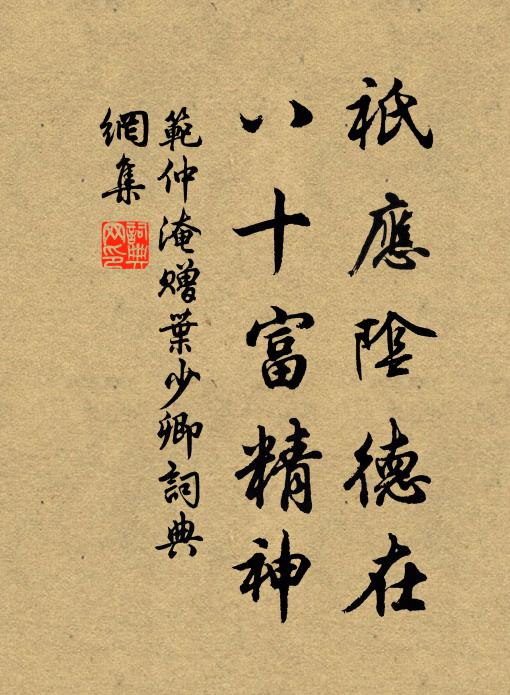 祇應陰德在
八十富精神
範仲淹贈葉少卿詞典
網集
詞典
网印